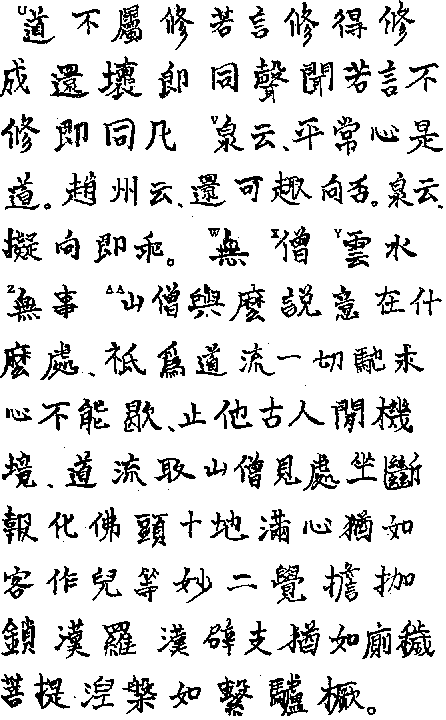 U道不屬修若言修得修
成還壞即同聲聞若言不
修即同凡 V泉云、平常心是
道。趙州云、還可趣向否。泉云、
擬向即乖。 W無 X僧 Y雲水
Z無事 AA山僧與麼説意在什
麼處、祗爲道流一切馳求
心不能歇、止他古人閒機
境、道流取山僧見處坐斷
報化佛頭十地滿心猶如
客作兒等妙二覺擔枷
鎖漢羅漢辟支猶如廁穢
菩提涅槃如繫驢橛。